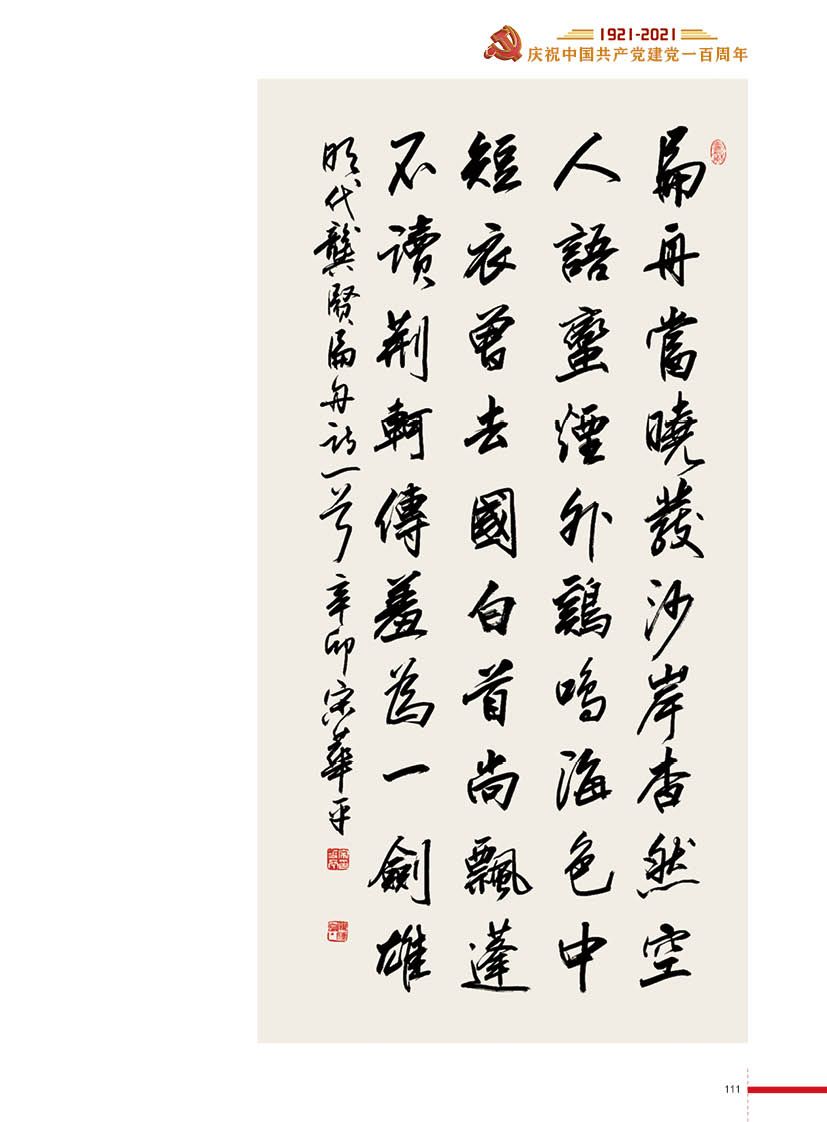 1921-2021
庆祝中国共产党建党一百周年
扁舟當曉發沙岸杳然空
人語蠻煙外鷄鳴海色中
短衣曾去國白首尚飄蓬
不讀荆軻傳羞爲一劍雄
明代龔賢扁舟诗一首辛卯宋華平
111